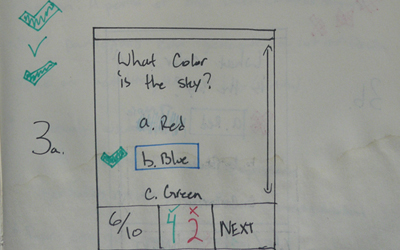 What Color
is the sky?
a. Red
3a.
b. Blue
c. Green
6/10
4 2
NEXT